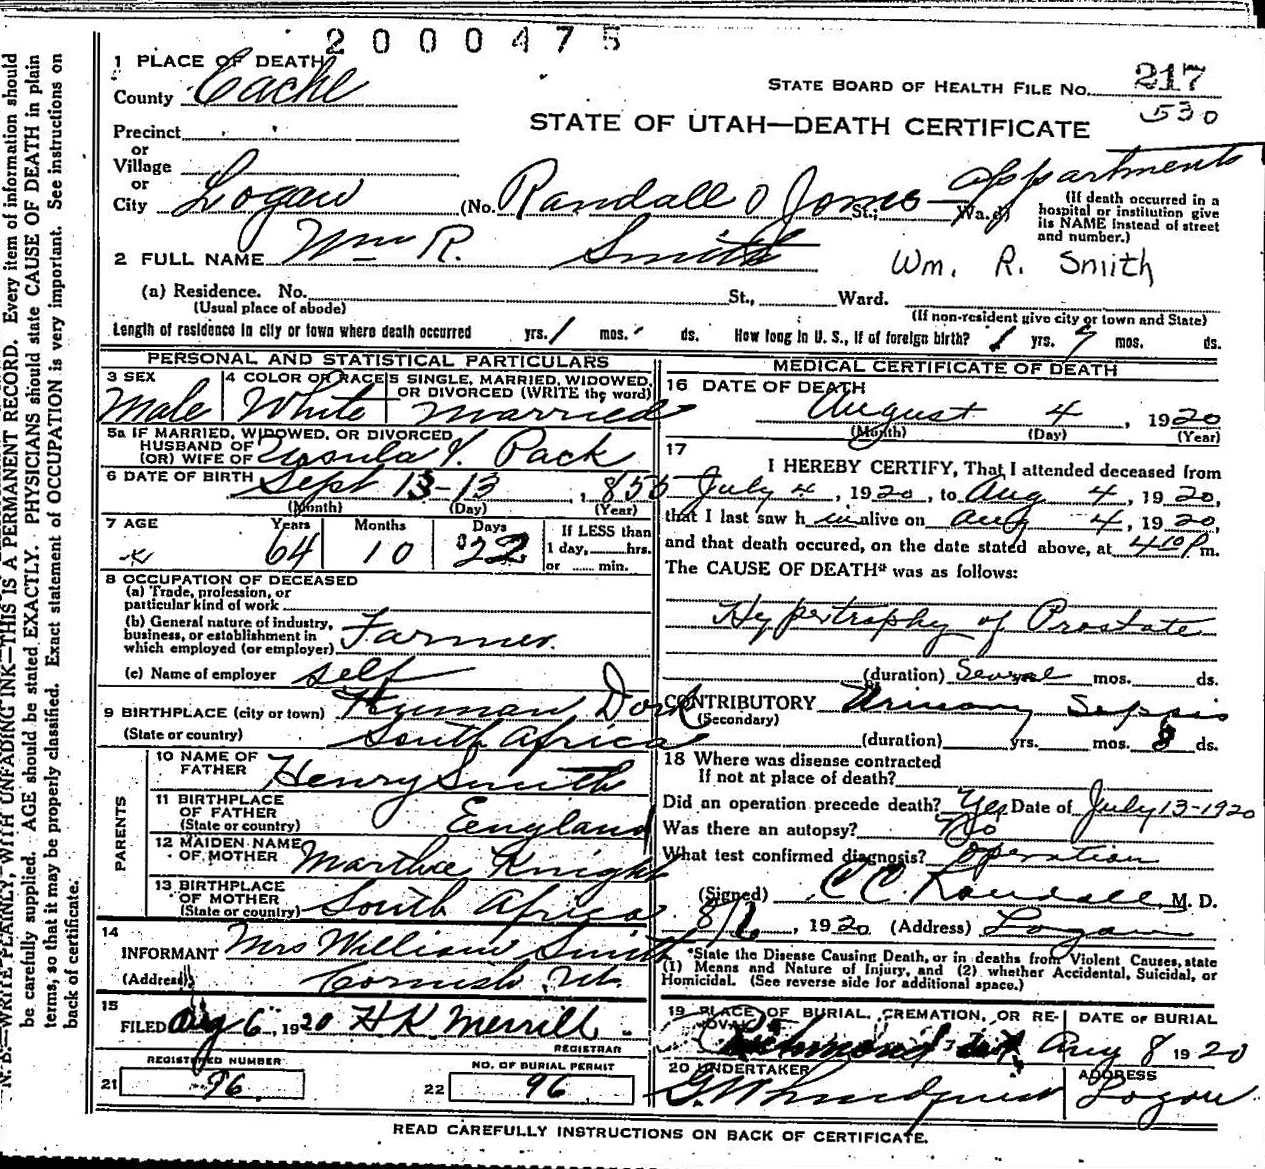 2000475
1 PLACE OF DEATH
County Cache
STATE BOARD OF HEALTH FILE No. 217
530
STATE OF UTAH—DEATH CERTIFICATE
Precinct
or
Village
or
City Logan (No. Randall O Jones St.; Ward) Appartments
(If death occurred in a hospital or institution give its NAME instead of street and number.)
2 FULL NAME Wm R. Smith
Wm. R. Smith
(a) Residence. No. St., Ward.
(Usual place of abode)
(If non-resident give city or town and State)
Length of residence in city or town where death occurred yrs. 1 mos. ds. How long in U. S., if of foreign birth? yrs. mos. ds.
PERSONAL AND STATISTICAL PARTICULARS
3 SEX
Male
4 COLOR OR RACE
White
5 SINGLE, MARRIED, WIDOWED, OR DIVORCED (WRITE the word)
Married
5a IF MARRIED, WIDOWED, OR DIVORCED
HUSBAND OF
(OR) WIFE OF Ursula V. Pack
6 DATE OF BIRTH Sept 13-13, 1855
(Month) (Day) (Year)
7 AGE
Years Months Days
64 10 22
If LESS than
1 day, hrs.
or min.
8 OCCUPATION OF DECEASED
(a) Trade, profession, or particular kind of work
(b) General nature of industry, business, or establishment in which employed (or employer) Farmer.
(c) Name of employer self
9 BIRTHPLACE (city or town)
(State or country) South Africa
PARENTS
10 NAME OF FATHER Henry Smith
11 BIRTHPLACE OF FATHER
(State or country) Eengland
12 MAIDEN NAME OF MOTHER Marthie Knight
13 BIRTHPLACE OF MOTHER
(State or country) South Africa
14
INFORMANT Mrs William Smith
(Address) Cornish, Ut.
15
FILED Aug 6, 1920 H K Merrill
REGISTRAR
REGISTERED NUMBER
21 96
NO. OF BURIAL PERMIT
22 96
MEDICAL CERTIFICATE OF DEATH
16 DATE OF DEATH
August 4, 1920
(Month) (Day) (Year)
17
I HEREBY CERTIFY, That I attended deceased from
July 4, 1920, to Aug 4, 1920,
that I last saw h im alive on Aug 4, 1920,
and that death occured, on the date stated above, at 4 10 P m.
The CAUSE OF DEATH* was as follows:
Hypertrophy of Prostate
(duration) Several mos. ds.
CONTRIBUTORY Urinary Sepsis
(Secondary)
(duration) yrs. mos. 8 ds.
18 Where was disease contracted
If not at place of death?
Did an operation precede death? Yes Date of July 13-1920
Was there an autopsy? No
What test confirmed diagnosis? operation
(Signed) C C Randall, M. D.
8/6, 1920 (Address) Logan
*State the Disease Causing Death, or in deaths from Violent Causes, state
(1) Means and Nature of Injury, and (2) whether Accidental, Suicidal, or
Homicidal. (See reverse side for additional space.)
19 PLACE OF BURIAL, CREMATION, OR REMOVAL
Richmond
DATE OF BURIAL
Aug 8 1920
20 UNDERTAKER
ADDRESS
Logan
READ CAREFULLY INSTRUCTIONS ON BACK OF CERTIFICATE.
N. B.—WRITE PLAINLY, WITH UNFADING INK—THIS IS A PERMANENT RECORD. Every item of information should
be carefully supplied. AGE should be stated EXACTLY. PHYSICIANS should state CAUSE OF DEATH in plain
terms, so that it may be properly classified. Exact statement of OCCUPATION is very important. See instructions on
back of certificate.